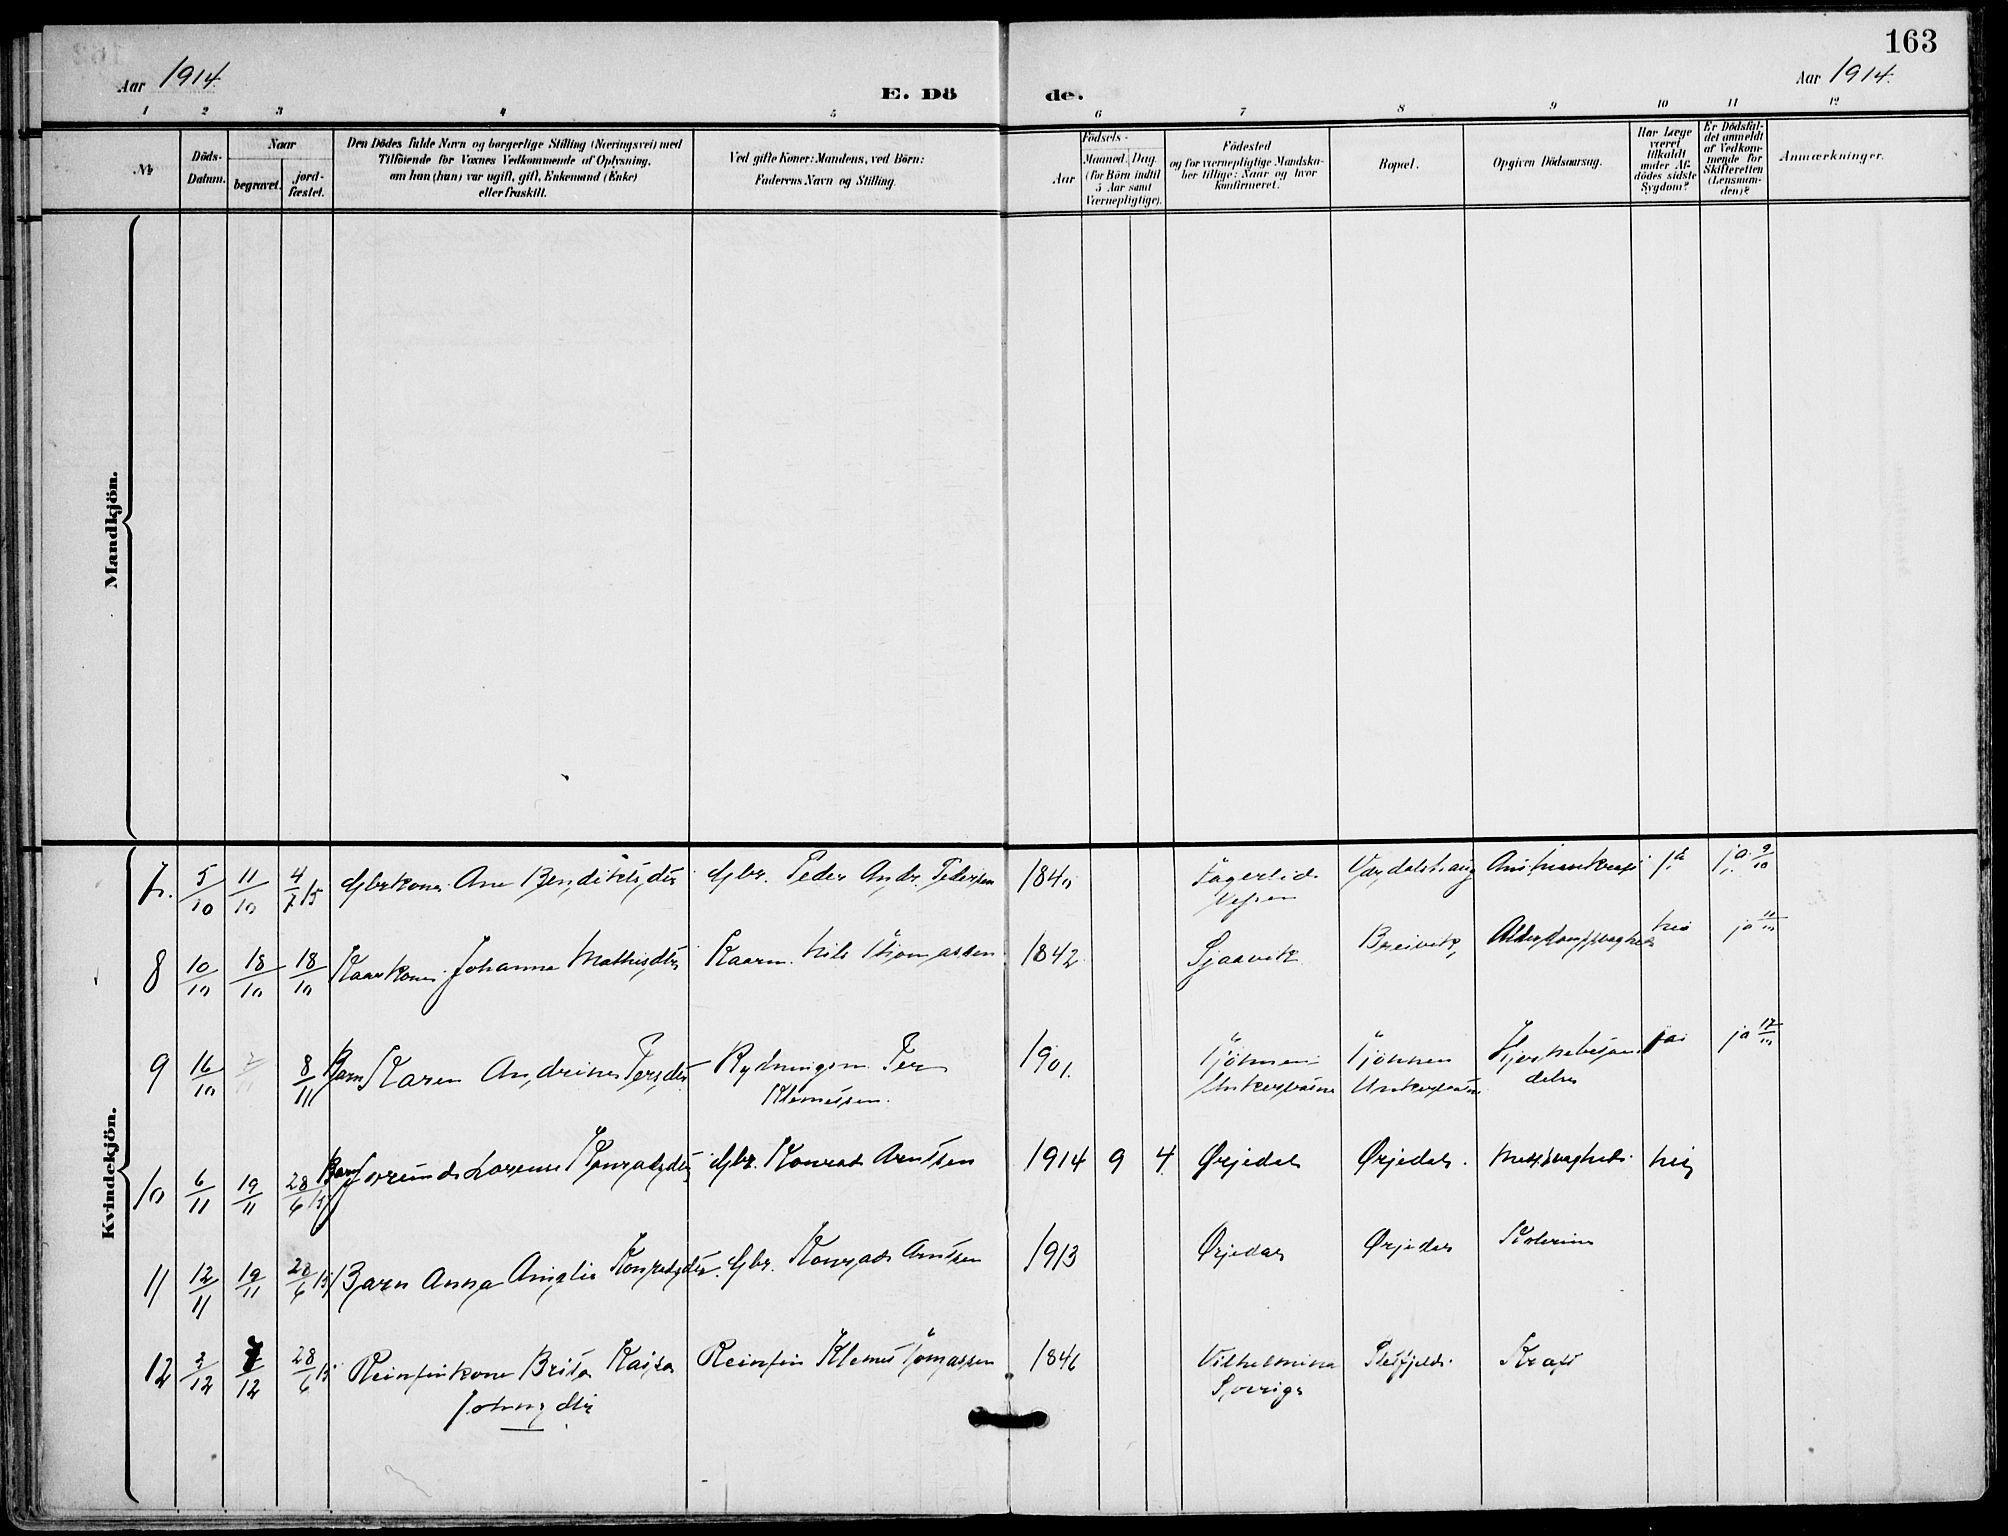 163
Aar 1914.
Aar 1914.
E. Dö de.
1 2 3 4 5 6 7 8 9 10 11 12
№
Döds-
Datum.
Naar
begravet.
jord-
fæstet.
Den Dödes fulde Navn og borgerlige Stilling (Næringsvei) med
Tilföiende for Voxnes Vedkommende af Oplysning,
om han (hun) var ugift, gift, Enkemand (Enke)
eller fraskilt.
Ved gifte Koner: Mandens, ved Börn:
Faderens Navn og Stilling.
Födsels-
Aar
Maaned.
Dag.
(for Börn indtil
5 Aar samt
Værnepligtige).
Födested
og for værnepligtige Mandska-
ber tillige: Naar og hvor
konfirmeret.
Bopæl.
Opgiven Dödsaarsag.
Har Læge
været
tilkaldt
under Af-
dödes sidste
Sygdom?
Er Dödsfal-
det anmeldt
af Vedkom-
mende for
Skifteretten
(Lensman-
den)?
Anmærkninger.
Mandkjön.
Kvindekjön.
7. 5/10 11/10 4/7 15 Gbrkone Ane Bendiktsdtr Gbr. Peder Andr. Pedersen 1840 Fagerlid Ja 9/10
Vefsen
8 10/10 18/10 18/10 Kaarkone Johanna Mathisdtr Kaarm. Nils Thomassen 1842 Sjaavik Breivik Alderdomssvaghed nei ja
9 16/10 8/11 Barn Karen Andrine Persdtr Rydningsm. Per 1901. Tjønnen Tjønnen ja ja
Klemetsen. Unkervatn Unkervatn
10 6/11 19/11 28/6 15 Barn Jorund Lorense Konradsdtr Gbr. Konrad Arntsen 1914 9 4. Ørjedal Ørjedal. Medf. svaghed. nei
11 12/11 19/11 28/6 15 Barn Anna Amalie Konradsdtr. Gbr. Konrad Arntsen 1913 Ørjedal Ørjedal Kolerine
12 3/12 7/12 28/6 15 Reinfinkone Brita Kajsa Reinfin Klemet Tomassen 1846 Vilhelmina Kræft
Johnsdtr Sverige